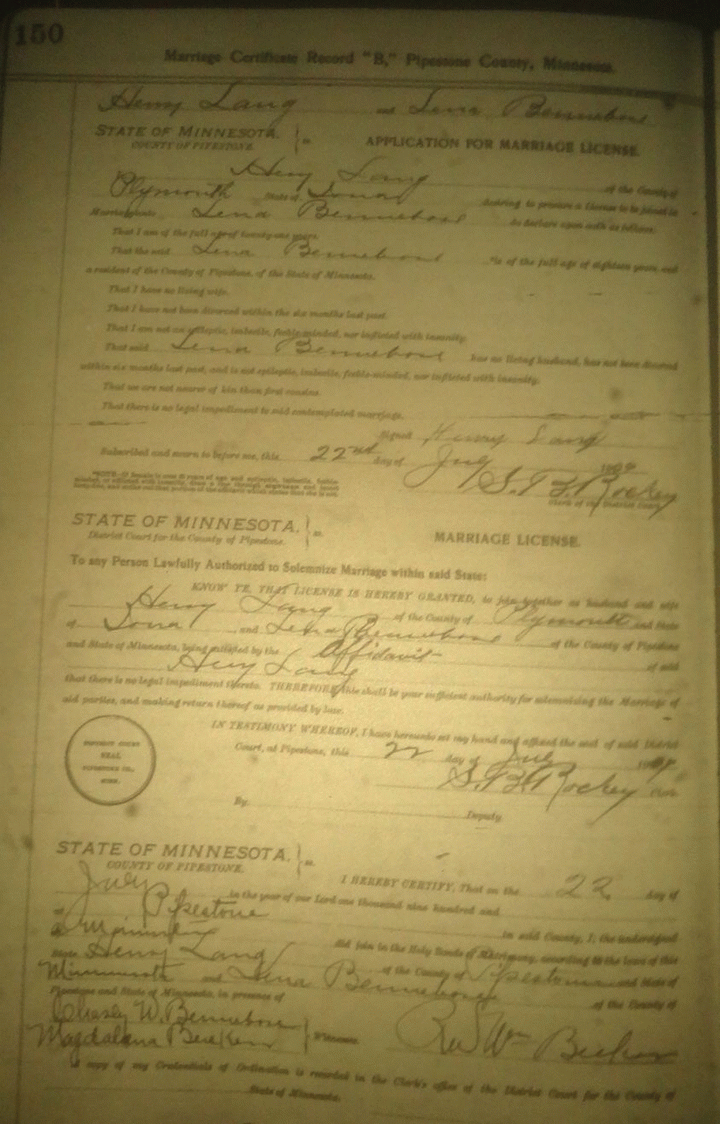 150
Marriage Certificate Record "B," Pipestone County, Minnesota.
Henry Lang and Lena Bennebose
STATE OF MINNESOTA, } ss.
COUNTY OF PIPESTONE.
APPLICATION FOR MARRIAGE LICENSE.
Henry Lang of the County of
Plymouth State of Iowa desiring to procure a license to be joined in
Marriage with Lena Bennebose do declare upon oath as follows:
That I am of the full age of twenty-one years.
That the said Lena Bennebose *is of the full age of eighteen years and
a resident of the County of Pipestone, of the State of Minnesota.
That I have no living wife.
That I have not been divorced within the six months last past.
That I am not an epileptic, imbecile, feeble-minded, nor inflicted with insanity.
That said Lena Bennebose has no living husband, has not been divorced
within six months last past, and is not epileptic, imbecile, feeble-minded, nor inflicted with insanity.
That we are not nearer of kin than first cousins.
That there is no legal impediment to said contemplated marriage.
Signed Henry Lang
Subscribed and sworn to before me, this 22nd day of July 1909
Rockey
Clerk of the District Court.
STATE OF MINNESOTA, } ss.
District Court for the County of Pipestone.
MARRIAGE LICENSE.
To any Person Lawfully Authorized to Solemnize Marriage within said State:
KNOW YE, THAT LICENSE IS HEREBY GRANTED, to join together as husband and wife
Henry Lang of the County of Plymouth and State
of Iowa, and Lena Bennebose of the County of Pipestone
and State of Minnesota, being satisfied by the Affidavit of said
Henry Lang
that there is no legal impediment thereto. THEREFORE, this shall be your sufficient authority for solemnizing the Marriage of
said parties, and making return thereof as provided by law.
IN TESTIMONY WHEREOF, I have hereunto set my hand and affixed the seal of said District
Court, at Pipestone, this 22 day of July
Rockey Clerk
DISTRICT COURT
SEAL
PIPESTONE CO.,
MINN.
By Deputy
STATE OF MINNESOTA, } ss.
COUNTY OF PIPESTONE.
I HEREBY CERTIFY, That on the 22 day of
July in the year of our Lord one thousand nine hundred and
at Pipestone in said County, I, the undersigned
did join in the Holy Bonds of Matrimony, according to the laws of this
State Henry Lang of the County of Pipestone and State of
Minnesota and Lena Bennebose of the County of
Pipestone and State of Minnesota, in presence of
W. Bennebose
Magdalena } Witnesses.
Rev Wm
A copy of my Credentials of Ordination is recorded in the Clerk's office of the District Court for the County of
State of Minnesota.